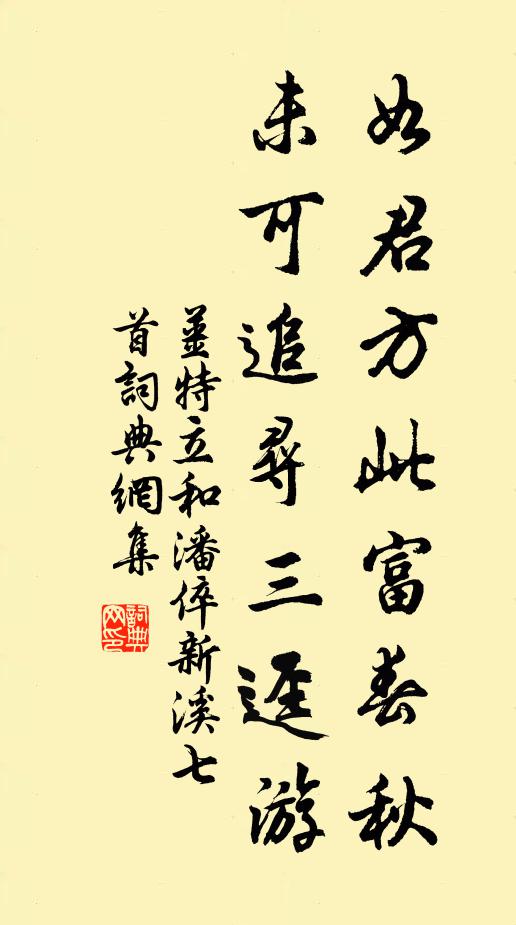 如君方此富春秋
未可追尋三逕游
姜特立和潘倅新溪七
首詞典網集
詞典
网印